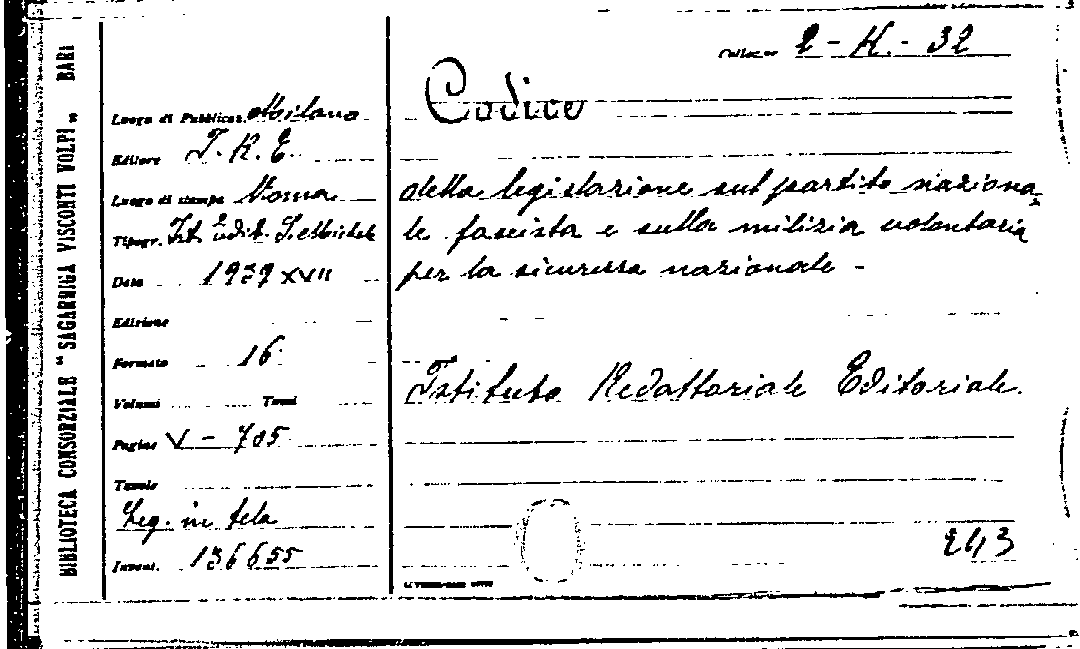 BIBLIOTECA CONSORZIALE "SAGARRIGA VISCONTI VOLPI" BARI
Collocaz. 2 - H. - 32
Luogo di Pubblicaz. Milano
Editore I. R. E.
Luogo di stampa Roma
Tipogr. Ist. Edit. S. Michele
Data 1939 XVII
Edizione
Formato 16°
Volumi Tomi
Pagine V - 705
Tavole
Leg. in tela
Invent. 136655
Codice
della legislazione sul partito naziona-
le fascista e sulla milizia volontaria
per la sicurezza nazionale -
Istituto Redattoriale Editoriale.
243